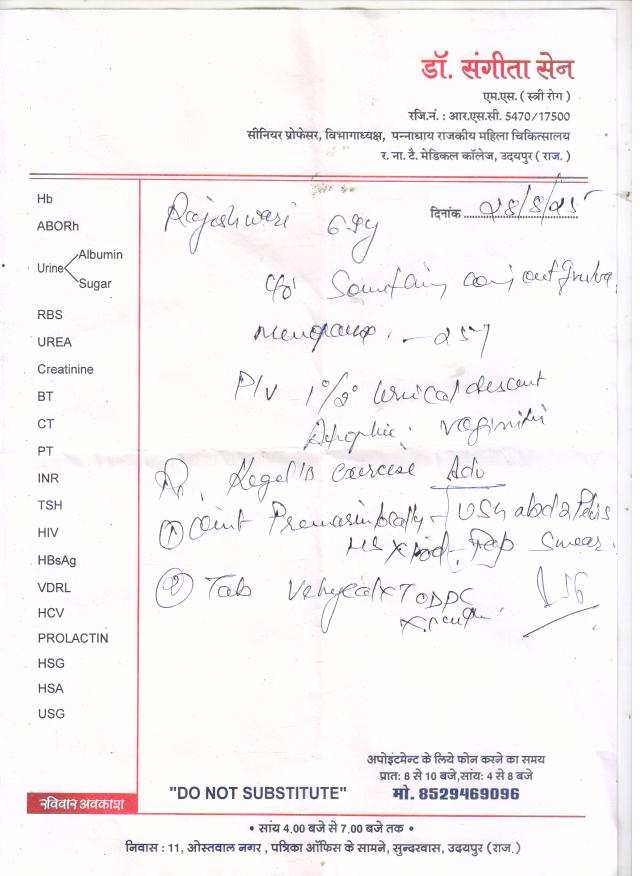 डॉ. संगीता सेन
एम.एस. ( स्त्री रोग )
रजि.नं. : आर.एस.सी. 5470/17500
सीनियर प्रोफेसर, विभागाध्यक्ष, पन्नाधाय राजकीय महिला चिकित्सालय
र. ना. टै. मेडिकल कॉलेज, उदयपुर ( राज. )
Hb
ABORh
Urine Albumin
Sugar
RBS
UREA
Creatinine
BT
CT
PT
INR
TSH
HIV
HBsAg
VDRL
HCV
PROLACTIN
HSG
HSA
USG
Rajeshwari 69y
दिनांक 28/8/25
c/o Something
Menopause -
P/V 1°/2° descent
Atrophic Vaginitis
Kegel's exercise Adv
① Oint Premarin locally - USG abd & Pelvis
HS x Pap Smear
② Tab OD
"DO NOT SUBSTITUTE"
अपोइंटमेन्ट के लिये फोन करने का समय
प्रात: 8 से 10 बजे,सांय: 4 से 8 बजे
मो. 8529469096
रविवार अवकाश
• सांय 4.00 बजे से 7.00 बजे तक •
निवास : 11, ओस्तवाल नगर , पत्रिका ऑफिस के सामने, सुन्दरवास, उदयपुर (राज.)